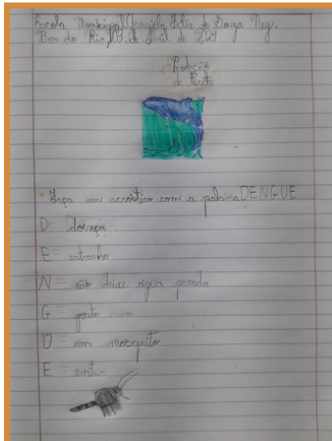 Escola Municipal de Souza Ney.
Rio, 13 de abril de 2024
Produção
de Texto
Faça um acróstico com a palavra DENGUE
D = doença
E =
N = não deixe água parada
G = gosto ruim
U = um mosquito
E =